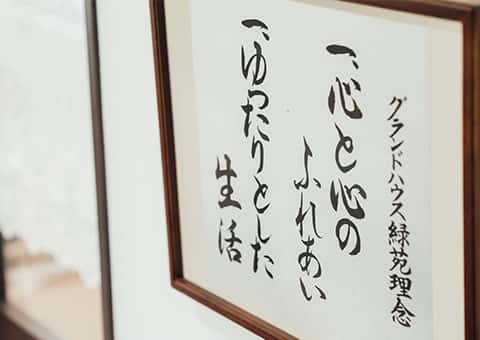 グランドハウス緑苑理念
一、心と心の
ふれあい
一、ゆったりとした
生活